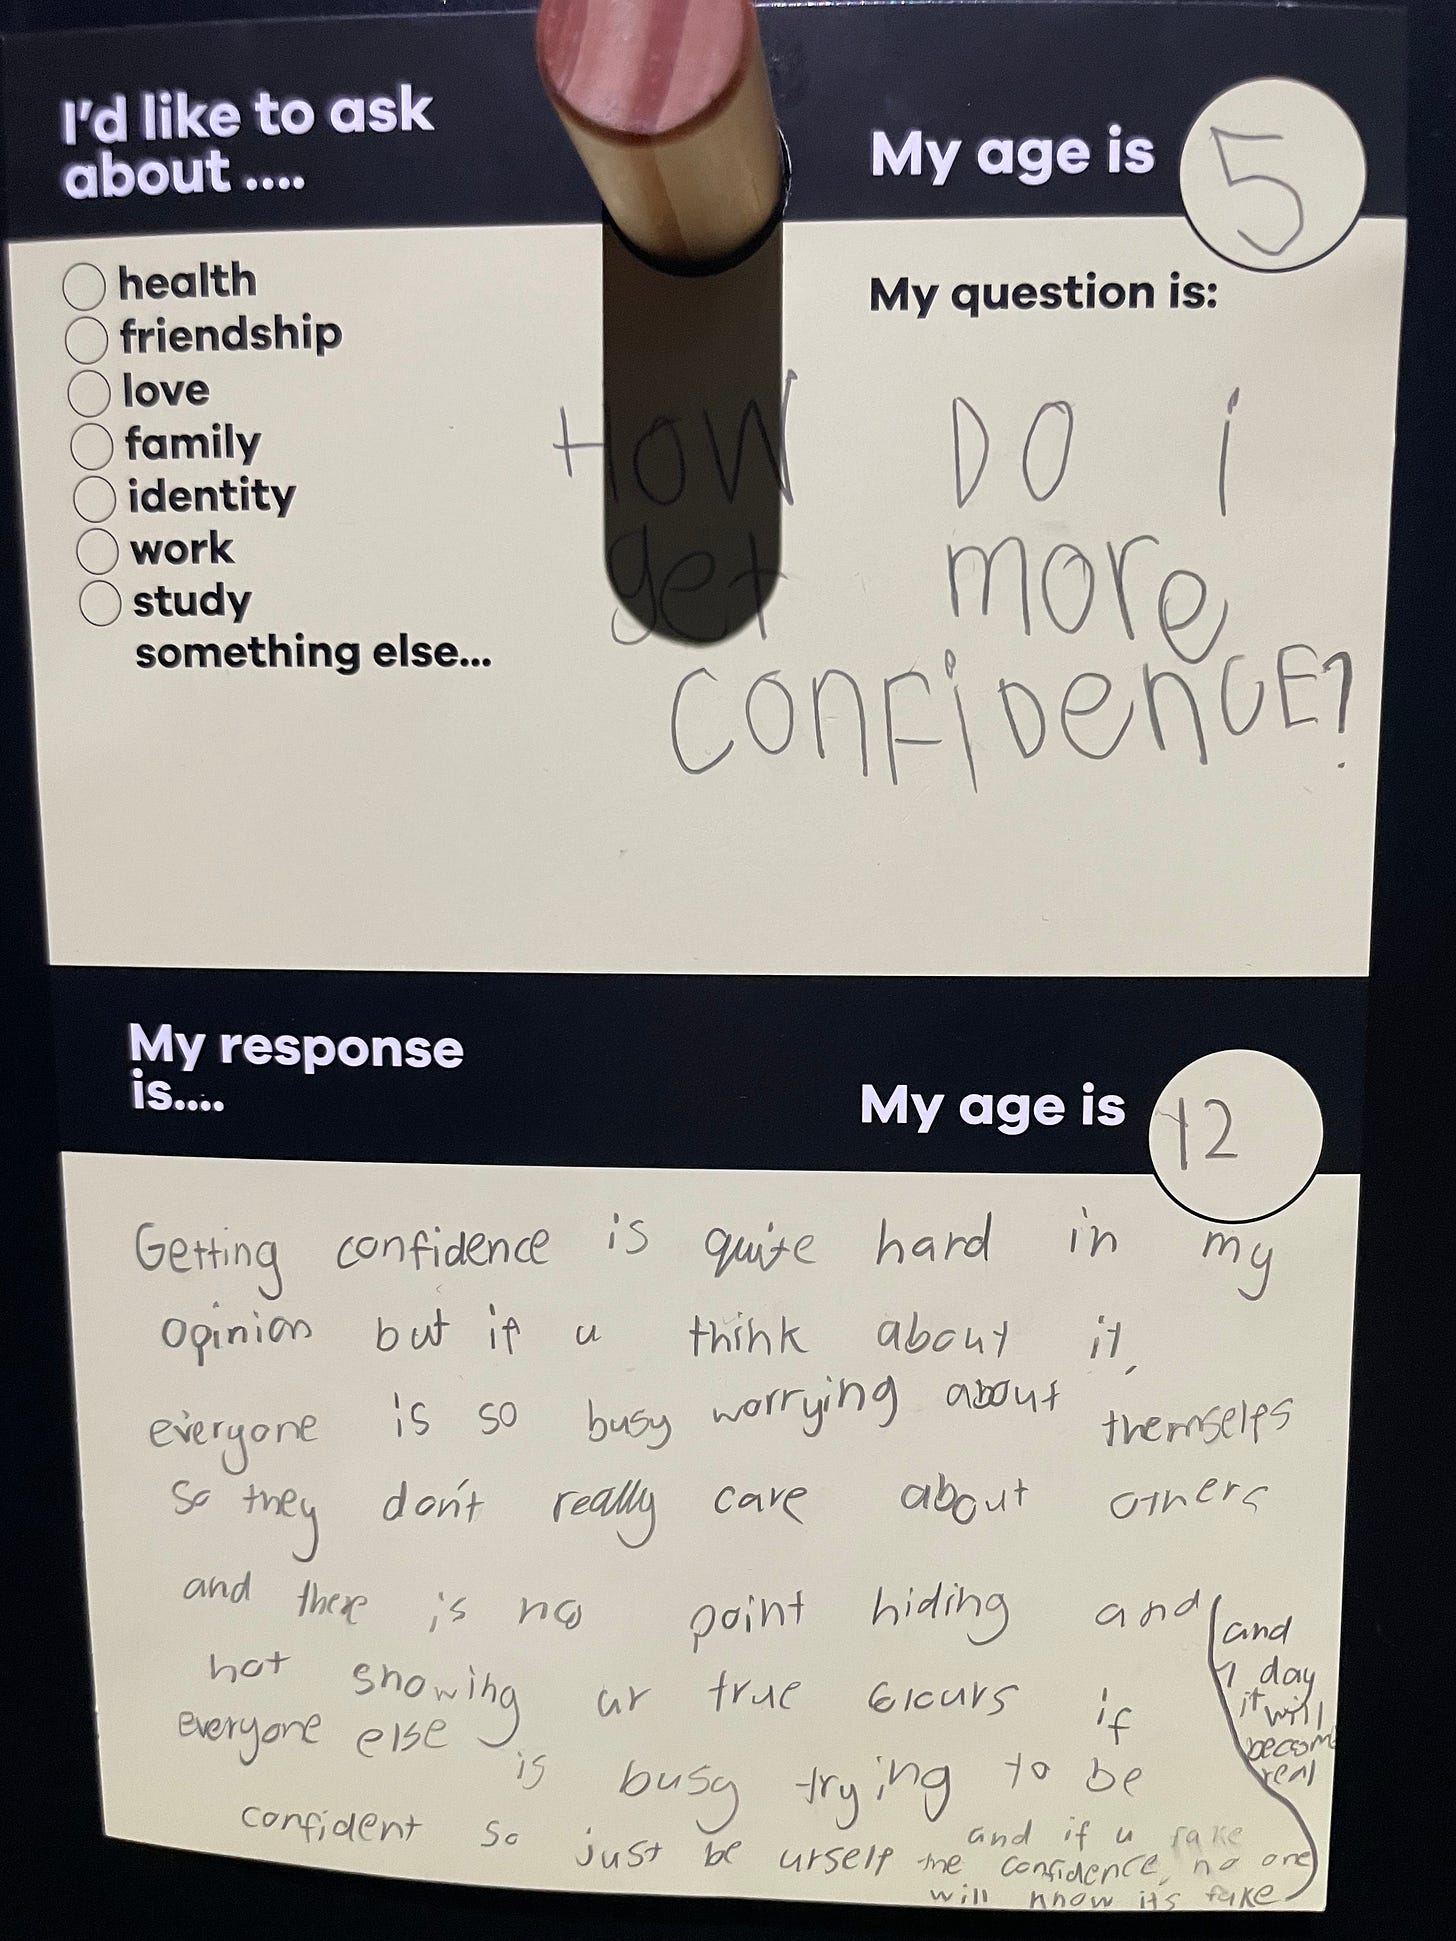 I'd like to ask
about ....
My age is 5
health
friendship
love
family
identity
work
study
something else...
My question is:
HOW DO i
get more
CONFiDenCE?
My response
is....
My age is 12
Getting confidence is quite hard in my
opinion but if u think about it,
everyone is so busy worrying about themselfs
so they don't really care about others
and there is no point hiding and
not showing ur true colours if
everyone else is busy trying to be
confident so just be urself and if u fake
the confidence, no one
will know its fake
and
1 day
it will
become
real